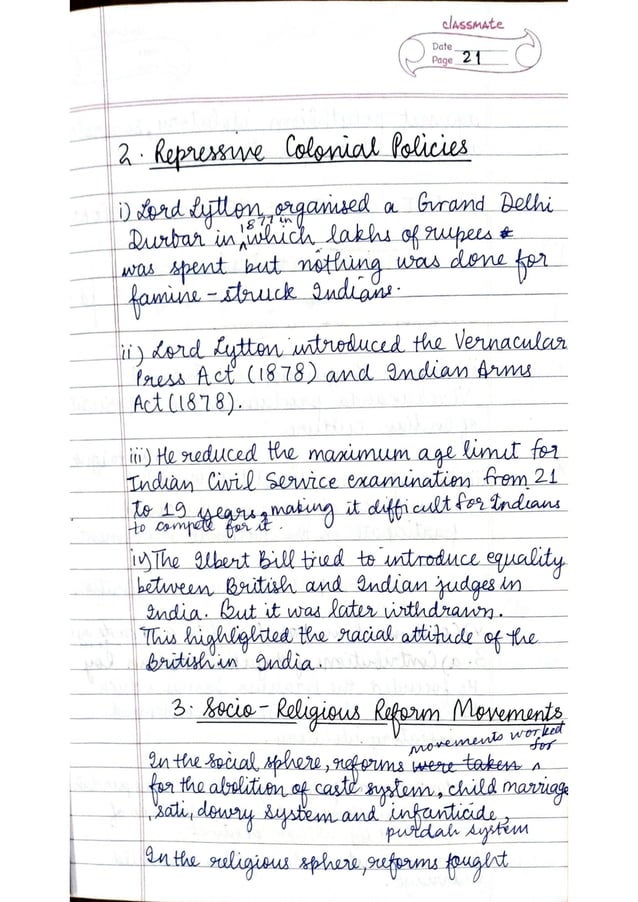 classmate
Date
Page 21
2. Repressive Colonial Policies
i) Lord Lytton organised a Grand Delhi
Durbar in 1877 in which lakhs of rupees
was spent but nothing was done for
famine-struck Indians.
ii) Lord Lytton introduced the Vernacular
Press Act (1878) and Indian Arms
Act (1878).
iii) He reduced the maximum age limit for
Indian Civil Service examination from 21
to 19 years, making it difficult for Indians
to compete for it.
iv) The Ilbert Bill tried to introduce equality
between British and Indian judges in
India. But it was later withdrawn.
This highlighted the racial attitude of the
British in India.
3. Socio-Religious Reform Movements
In the social sphere, reforms were taken movements worked for
for the abolition of caste system, child marriage
, sati, dowry system and infanticide,
purdah system
In the religious sphere, reforms fought